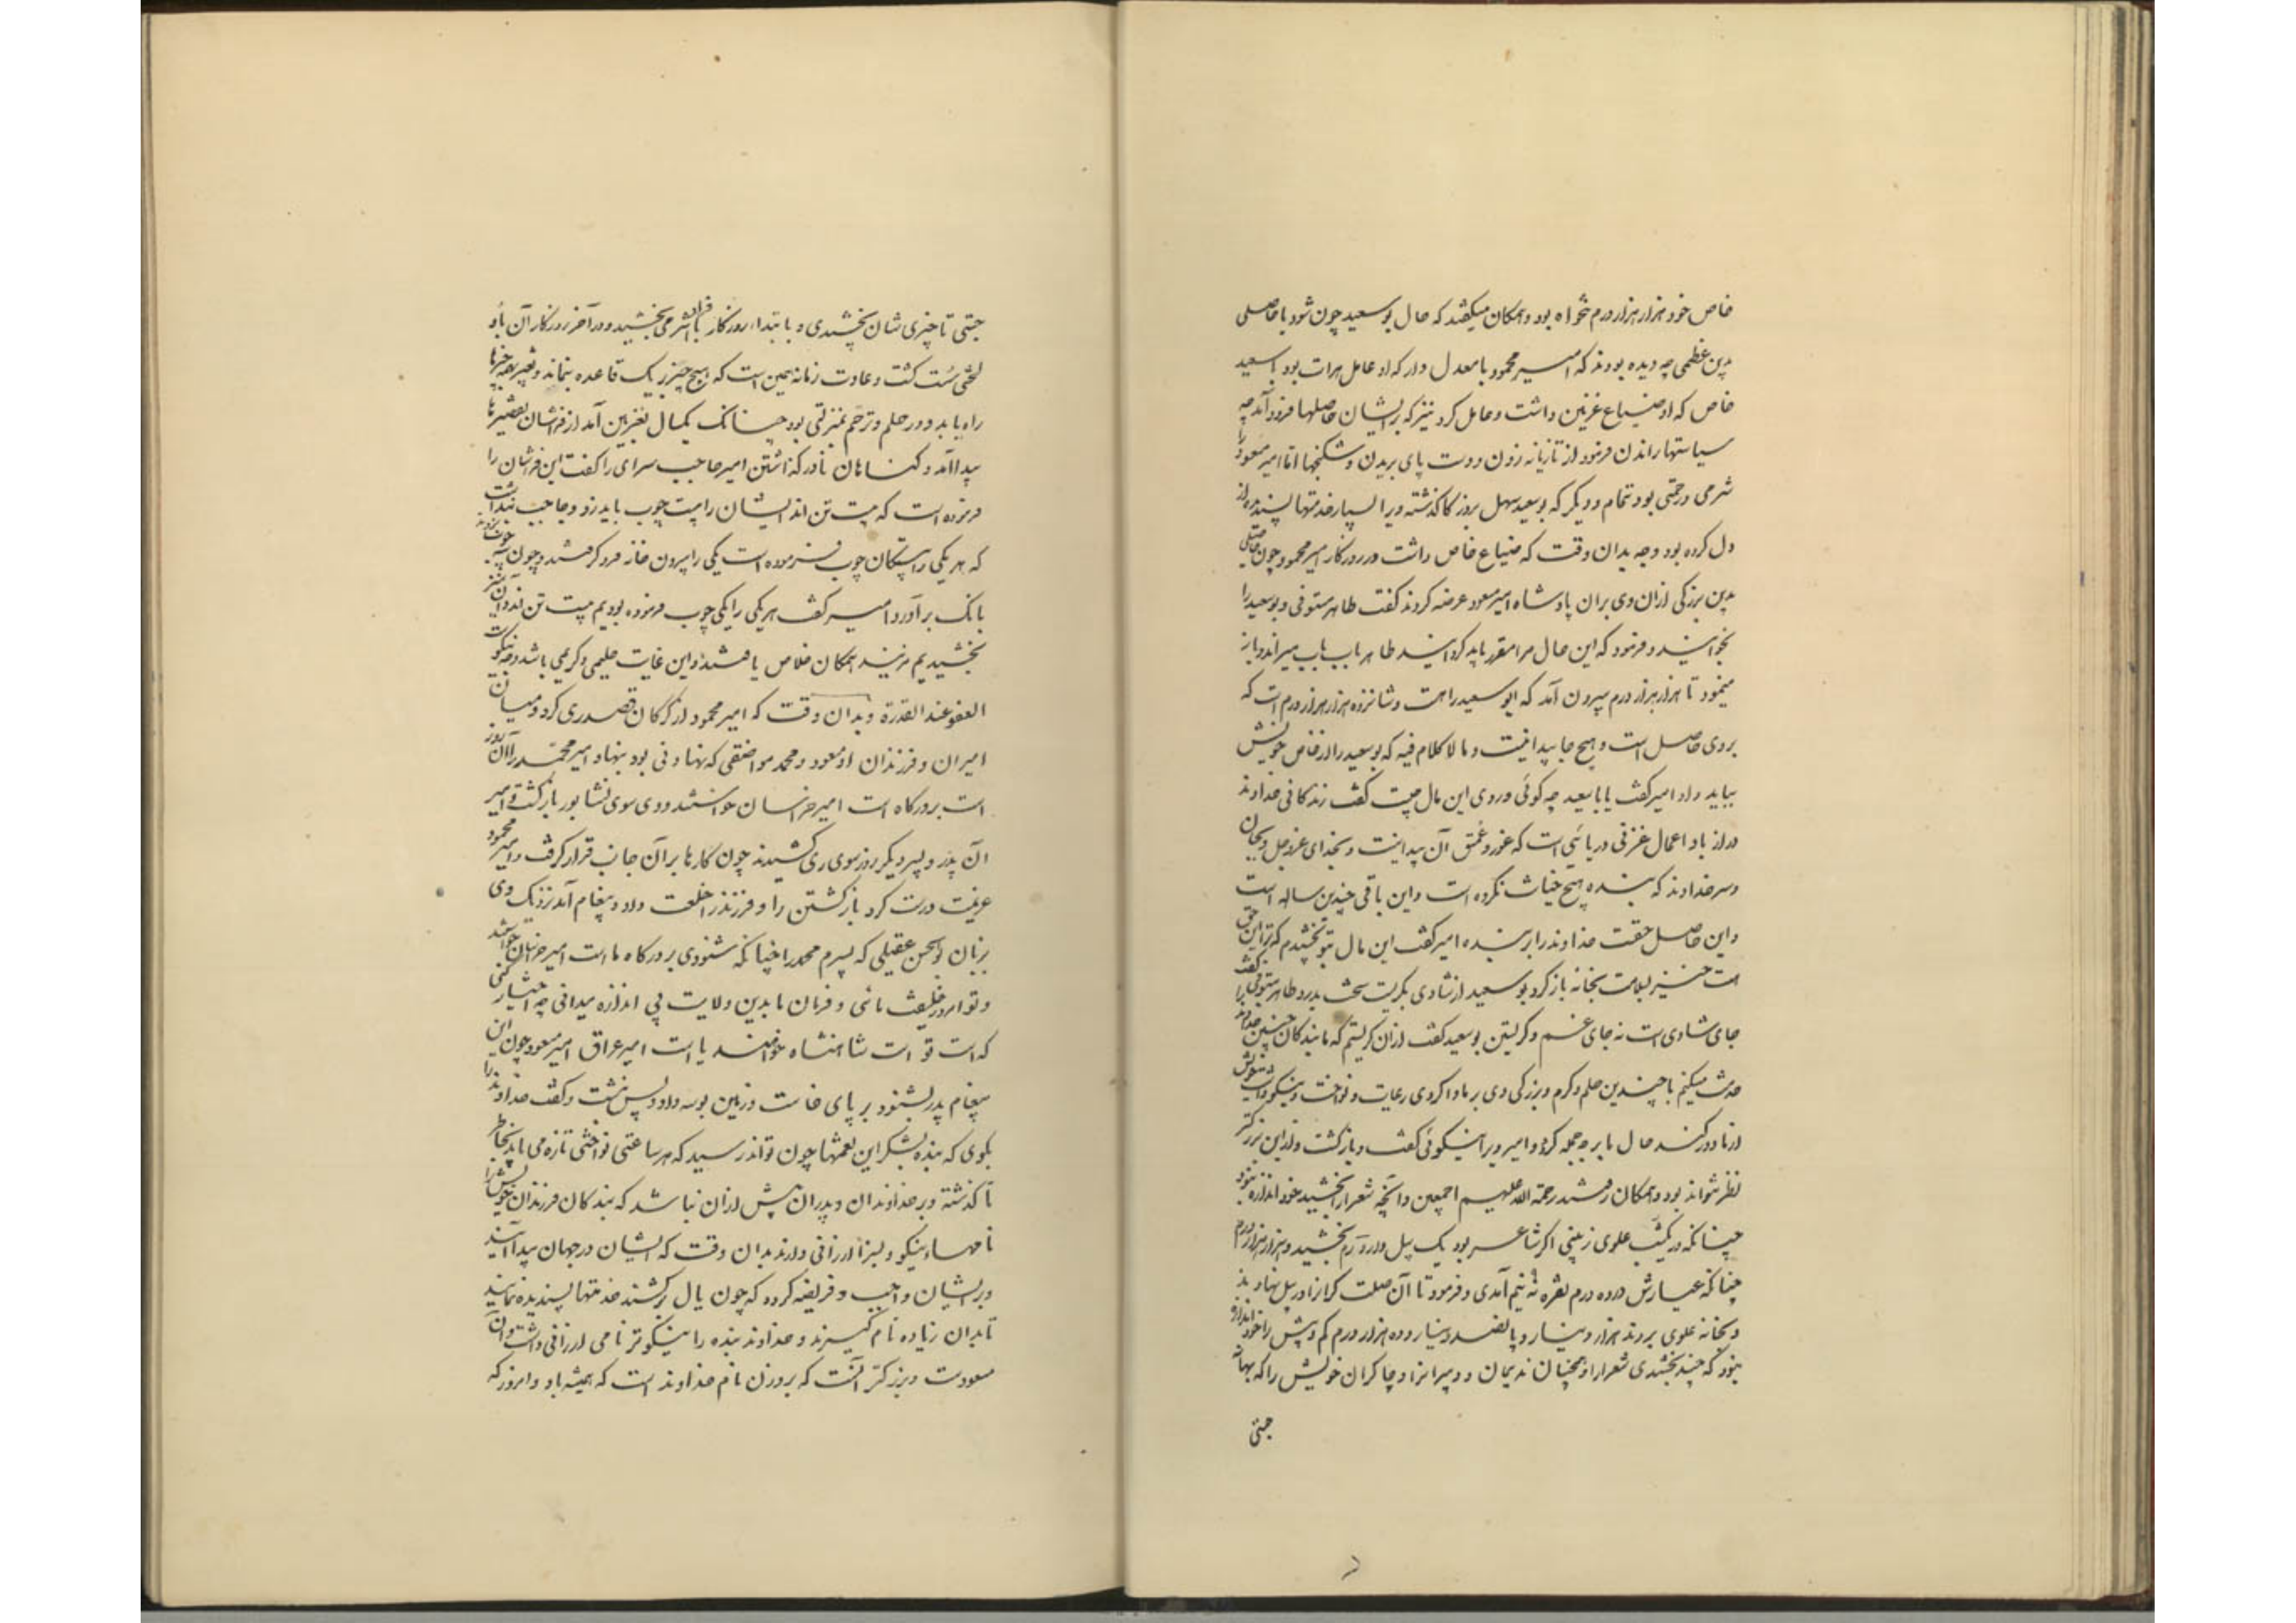 خاص خود هزار هزار درم نخواه بود و همکان میکفتند که حال بوسعید چون شود با حاصلی
بدین عظمی چه دیده بودند که امیر محمود با معدل دار که او عامل هرات بود با سعید
خاص که او ضیاع غزنین داشت و عامل کردیز که بر ایشان حاصلها فرود آمد چه
سیاستها راندن فرمود از تازیانه زدن و دست پای بریدن و شکنجها اما امیر مسعود را
شرمی و رحمتی بود تمام و دیکر که بوسعید سهل بروزکار کذشته ویرا بسیار خدمتها پسندیده از
دل کرده بود و چه بدان وقت که ضیاع خاص داشت در روزکار امیر محمود و چون حاصلی
بدین بزرکی ازان وی بران پادشاه امیر مسعود عرضه کردند کفت طاهر مستوفی و بوسعید را
بخوانید و فرمود که این حال مرا مقرر باید کردانید طاهر باب باب میراند و باز
مینمود تا هزار هزار درم بیرون آمد که ابو سعید راست و شانزده هزار هزار درم است که
بروی حاصل است و هیچ جا پیدا نیست و مالا کلام فیه که بوسعید را از خاص خویش
بباید داد امیر کفت یا با سعید چه کوئی و روی این مال چیست کفت زندکانی خداوند
دراز باد اعمال غزنی دریائی است که غور و عمق آن پیدا نیست و بخدای عزوجل و بجان
و سر خداوند که بنده هیچ خیانت نکرده است و این باقی چندین ساله است
و این حاصل حقست خداوند را بر بنده امیر کفت این مال بتو بخشیدم که ترا این حق
است خیز بسلامت بخانه بازکرد بوسعید از شادی بکریست سخت بدرد طاهر مستوفی کفت
جای شادی است نه جای غم و کریستن بوسعید کفت ازان کریستم که ما بندکان چنین خداوند را
خدمت میکنیم با چندین حلم و کرم و بزرکی وی بر ما و اکر وی رعایت و نواخت و نیکو داشت خویش
از ما دور کند حال ما بر چه جمله کردد و امیر ویرا نیکوئی کفت و بازکشت و ازین بزرکتر
نظر نتواند بود و همکان رفتند رحمة الله علیهم اجمعین و آنچه شعرا را بخشید خود اندازه نبود
چنانکه در یکشب علوی زینبی که شاعر بود یک پیل وار درم بخشید و هزار هزار درم
چنانکه عیارش در ده درم نقره نه نیم آمدی و فرمود تا آن صلت کرانرا در پیل نهادند
و بخانه علوی بردند هزار دینار و پانصد دینار و ده هزار درم کم و بیش را خود اندازه
نبود که چند بخشیدی شعرا را و همچنان ندیمان و دبیرانرا و چاکران خویش را که بهانه
جستی
جستی تا چیزی شان بخشیدی و بابتداء روزکار بافراط تر می بخشید و در آخر روزکار آن باد
لختی سست کشت و عادت زمانه همین است که هیچ چیز بر یک قاعده بنماند و تغییر بهمه چیزها
راه یابد و در حلم و ترحم بمنزلتی بود چنانک یکسال بغزنین آمد از فراشان تقصیرها
پیدا آمد و کناهان نادرکذاشتن امیر حاجب سرای را کفت این فراشان را
فرموده است که بیست تن اند ایشان را بیست چوب باید زد و حاجب پنداشت
که هر یکی را بیستکان چوب فرموده است یکی را بیرون خانه فرو کرفتند و چون سه چوب بزدند
بانک برآورد امیر کفت هر یکی را یکی چوب فرموده بودیم بیست تن اند و آن نیز
بخشیدیم مزنید همکان خلاص یافتند و این غایت حلیمی و کریمی باشد و چه نیکوست
العفو عند القدرة و بدان وقت که امیر محمود از کرکان قصد ری کرد و میان
امیران و فرزندان او مسعود و محمد مواضعتی که نهادنی بود بنهاد امیر محمد را آن روز
است بر درکاه است امیر خراسان خواستند و وی سوی نشابور بازکشت و امیر
آن پدر و پسر دیکر روز سوی ری کشیدند چون کارها بر آن جانب قرار کرفت و امیر محمود
عزیمت درست کرد بازکشتن را و فرزند را خلعت داد و پیغام آمد نزدیک وی
بزبان بوالحسن عقیلی که پسرم محمد را چنانکه شنودی بر درکاه ما است امیر خراسان خواستند
و تو امروز خلیفت مائی و فرمان ما بدین ولایت بی اندازه میدانی چه اختیار کنی
که است تو است شاهنشاه خوانند یا است امیر عراق امیر مسعود چون این
پیغام پدر بشنود بر پای خاست و زمین بوسه داد و پس نشست و کفت خداوند را
بکوی که بنده بشکر این نعمتها چون تواند رسید که هر ساعتی نواختی تازه می یابد بخاطر
نا کذشته و بر خداوندان و پدران بیش ازان نباشد که بندکان فرزندان خویش را
نامهاء نیکو و بسزا ارزانی دارند بدان وقت که ایشان در جهان پیدا آیند
و بر ایشان واجب و فریضه کردد که چون یال برکشند خدمتها پسندیده نمایند
تا بدان زیاده نام کیرند و خداوند بنده را نیکوتر نامی ارزانی داشت و آن
مسعودست و بزرکتر آنست که بر وزن نام خداوند است که همیشه باد و امروز که